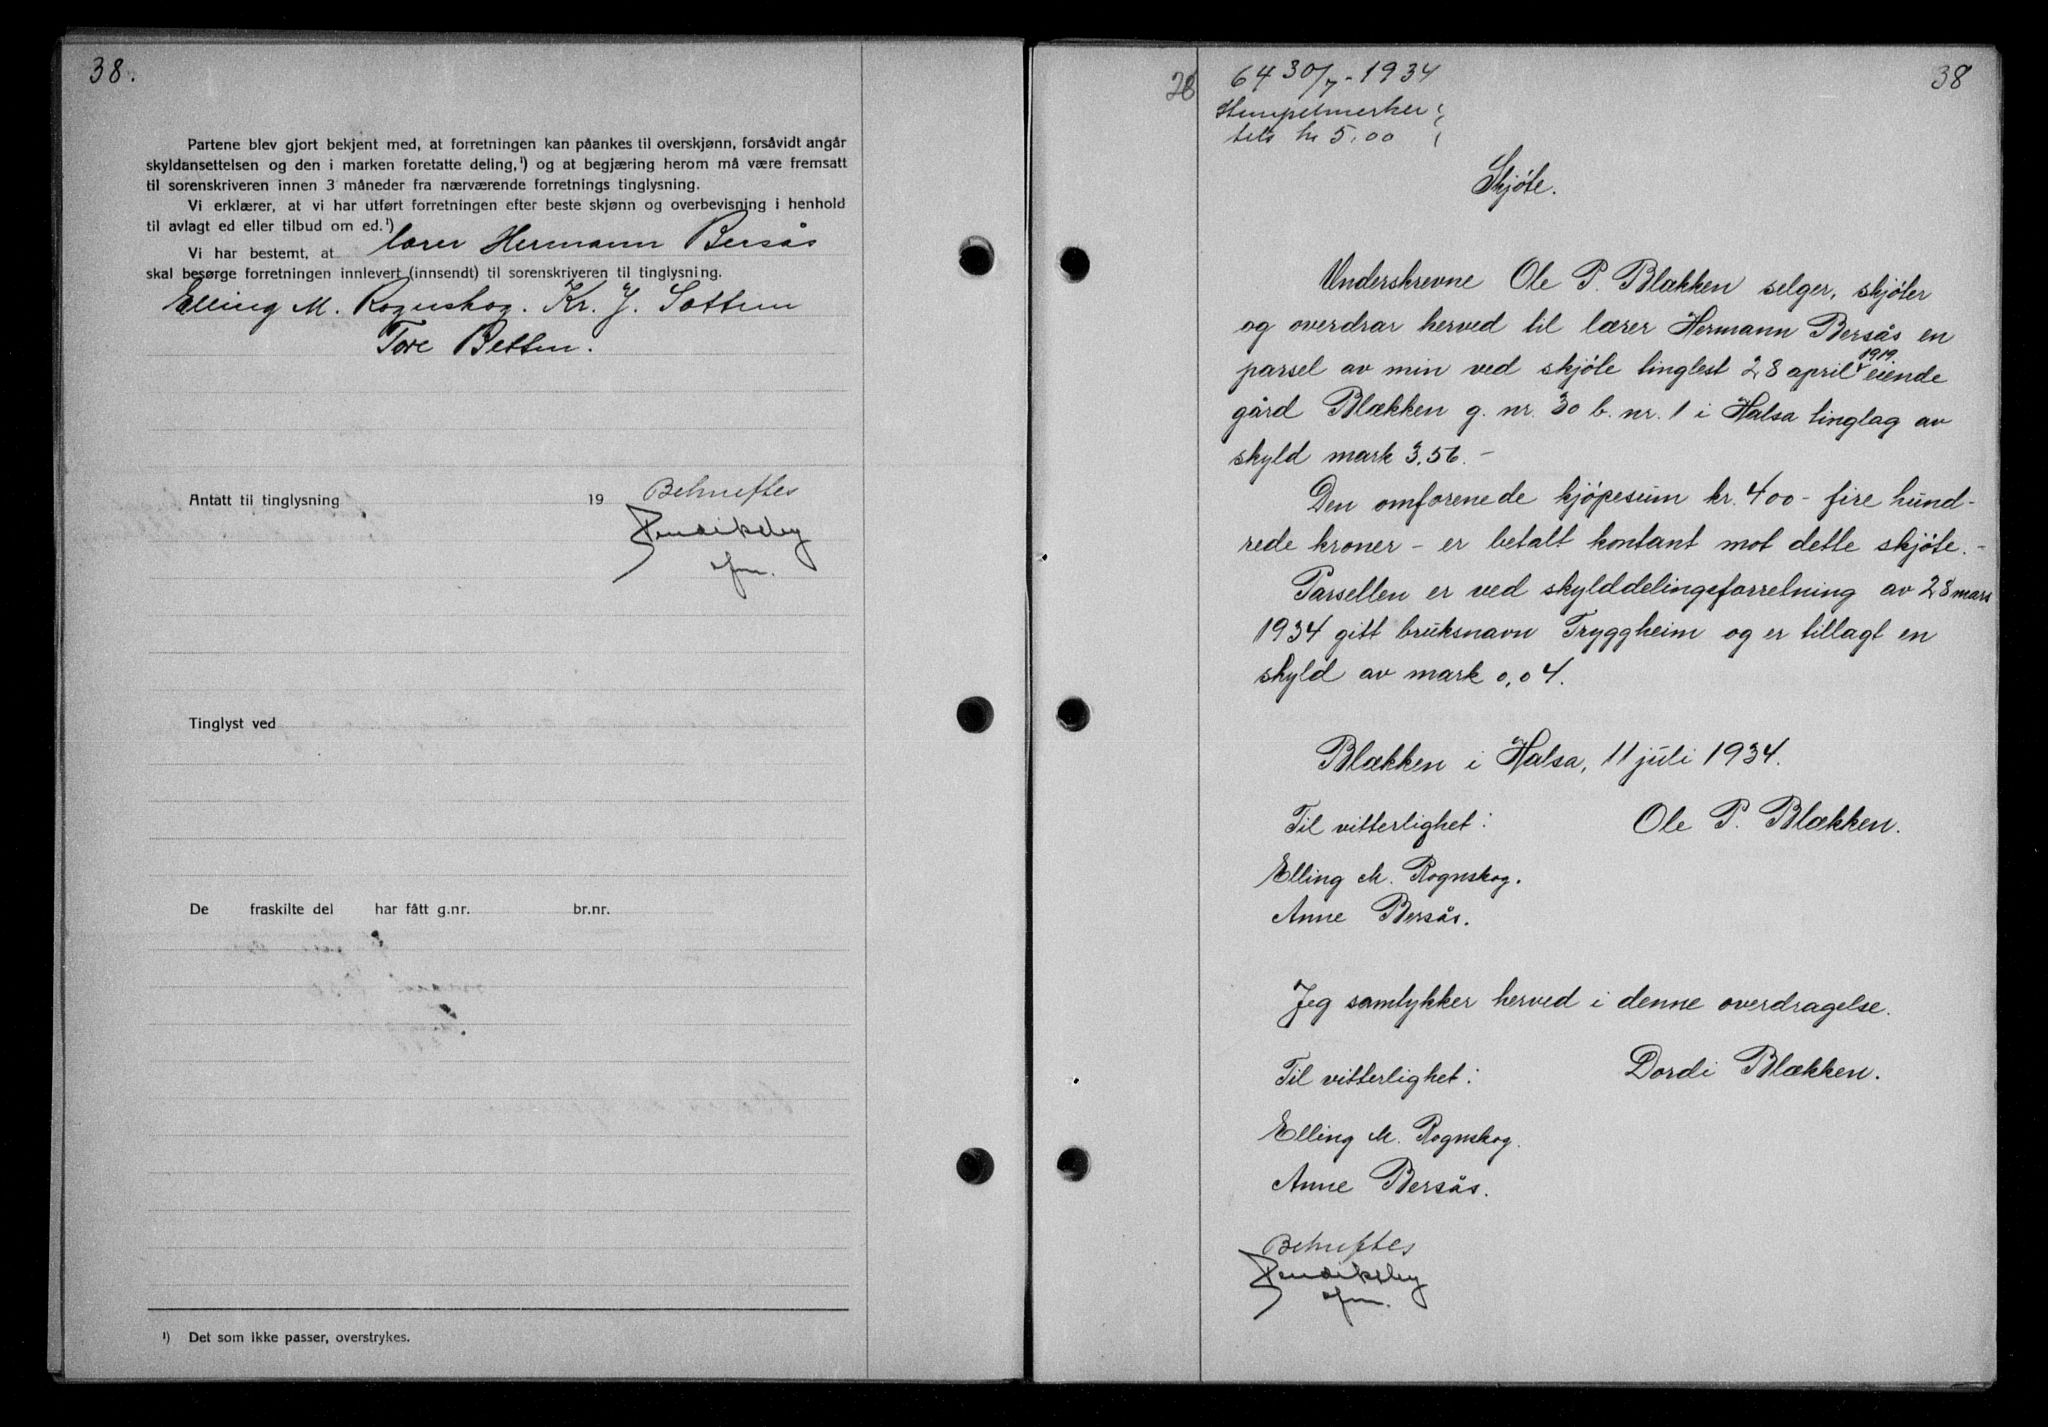 38.
Partene blev gjort bekjent med, at forretningen kan påankes til overskjønn, forsåvidt angår
skyldansettelsen og den i marken foretatte deling,¹) og at begjæring herom må være fremsatt
til sorenskriveren innen 3 måneder fra nærværende forretnings tinglysning.
Vi erklærer, at vi har utført forretningen efter beste skjønn og overbevisning i henhold
til avlagt ed eller tilbud om ed.¹)
Vi har bestemt, at lærer Hermann Bersås
skal besørge forretningen innlevert (innsendt) til sorenskriveren til tinglysning.
Elling M. Rognskog. Kr. J. Sottem
Tore Betten.
Antatt til tinglysning 19
Bekreftes
Tinglyst ved
De fraskilte del har fått g.nr. br.nr.
¹) Det som ikke passer, overstrykes.
28
64 30/7-1934
38
Stempelmerker
kr 5,00
Skjøte.
Underskrevne Ole P. Blækken selger, skjøter
og overdrar herved til lærer Hermann Bersås en
parsel av min ved skjøte tinglest 28 april 1919 eiende
gård Blækken g. nr. 30 b. nr. 1 i Halsa tinglag av
skyld mark 3.56. -
Den omforenede kjøpesum kr. 400 - fire hund-
rede kroner - er betalt kontant mot dette skjøte. -
Parsellen er ved skylddelingsforretning av 28 mars
1934 gitt bruksnavn Tryggheim og er tillagt en
skyld av mark 0,04.
Blækken i Halsa, 11 juli 1934.
Til vitterlighet: Ole P. Blækken.
Elling M. Rognskog.
Anne Bersås.
Jeg samtykker herved i denne overdragelse.
Til vitterlighet: Dordi Blækken.
Elling M. Rognskog.
Anne Bersås.
Bekreftes